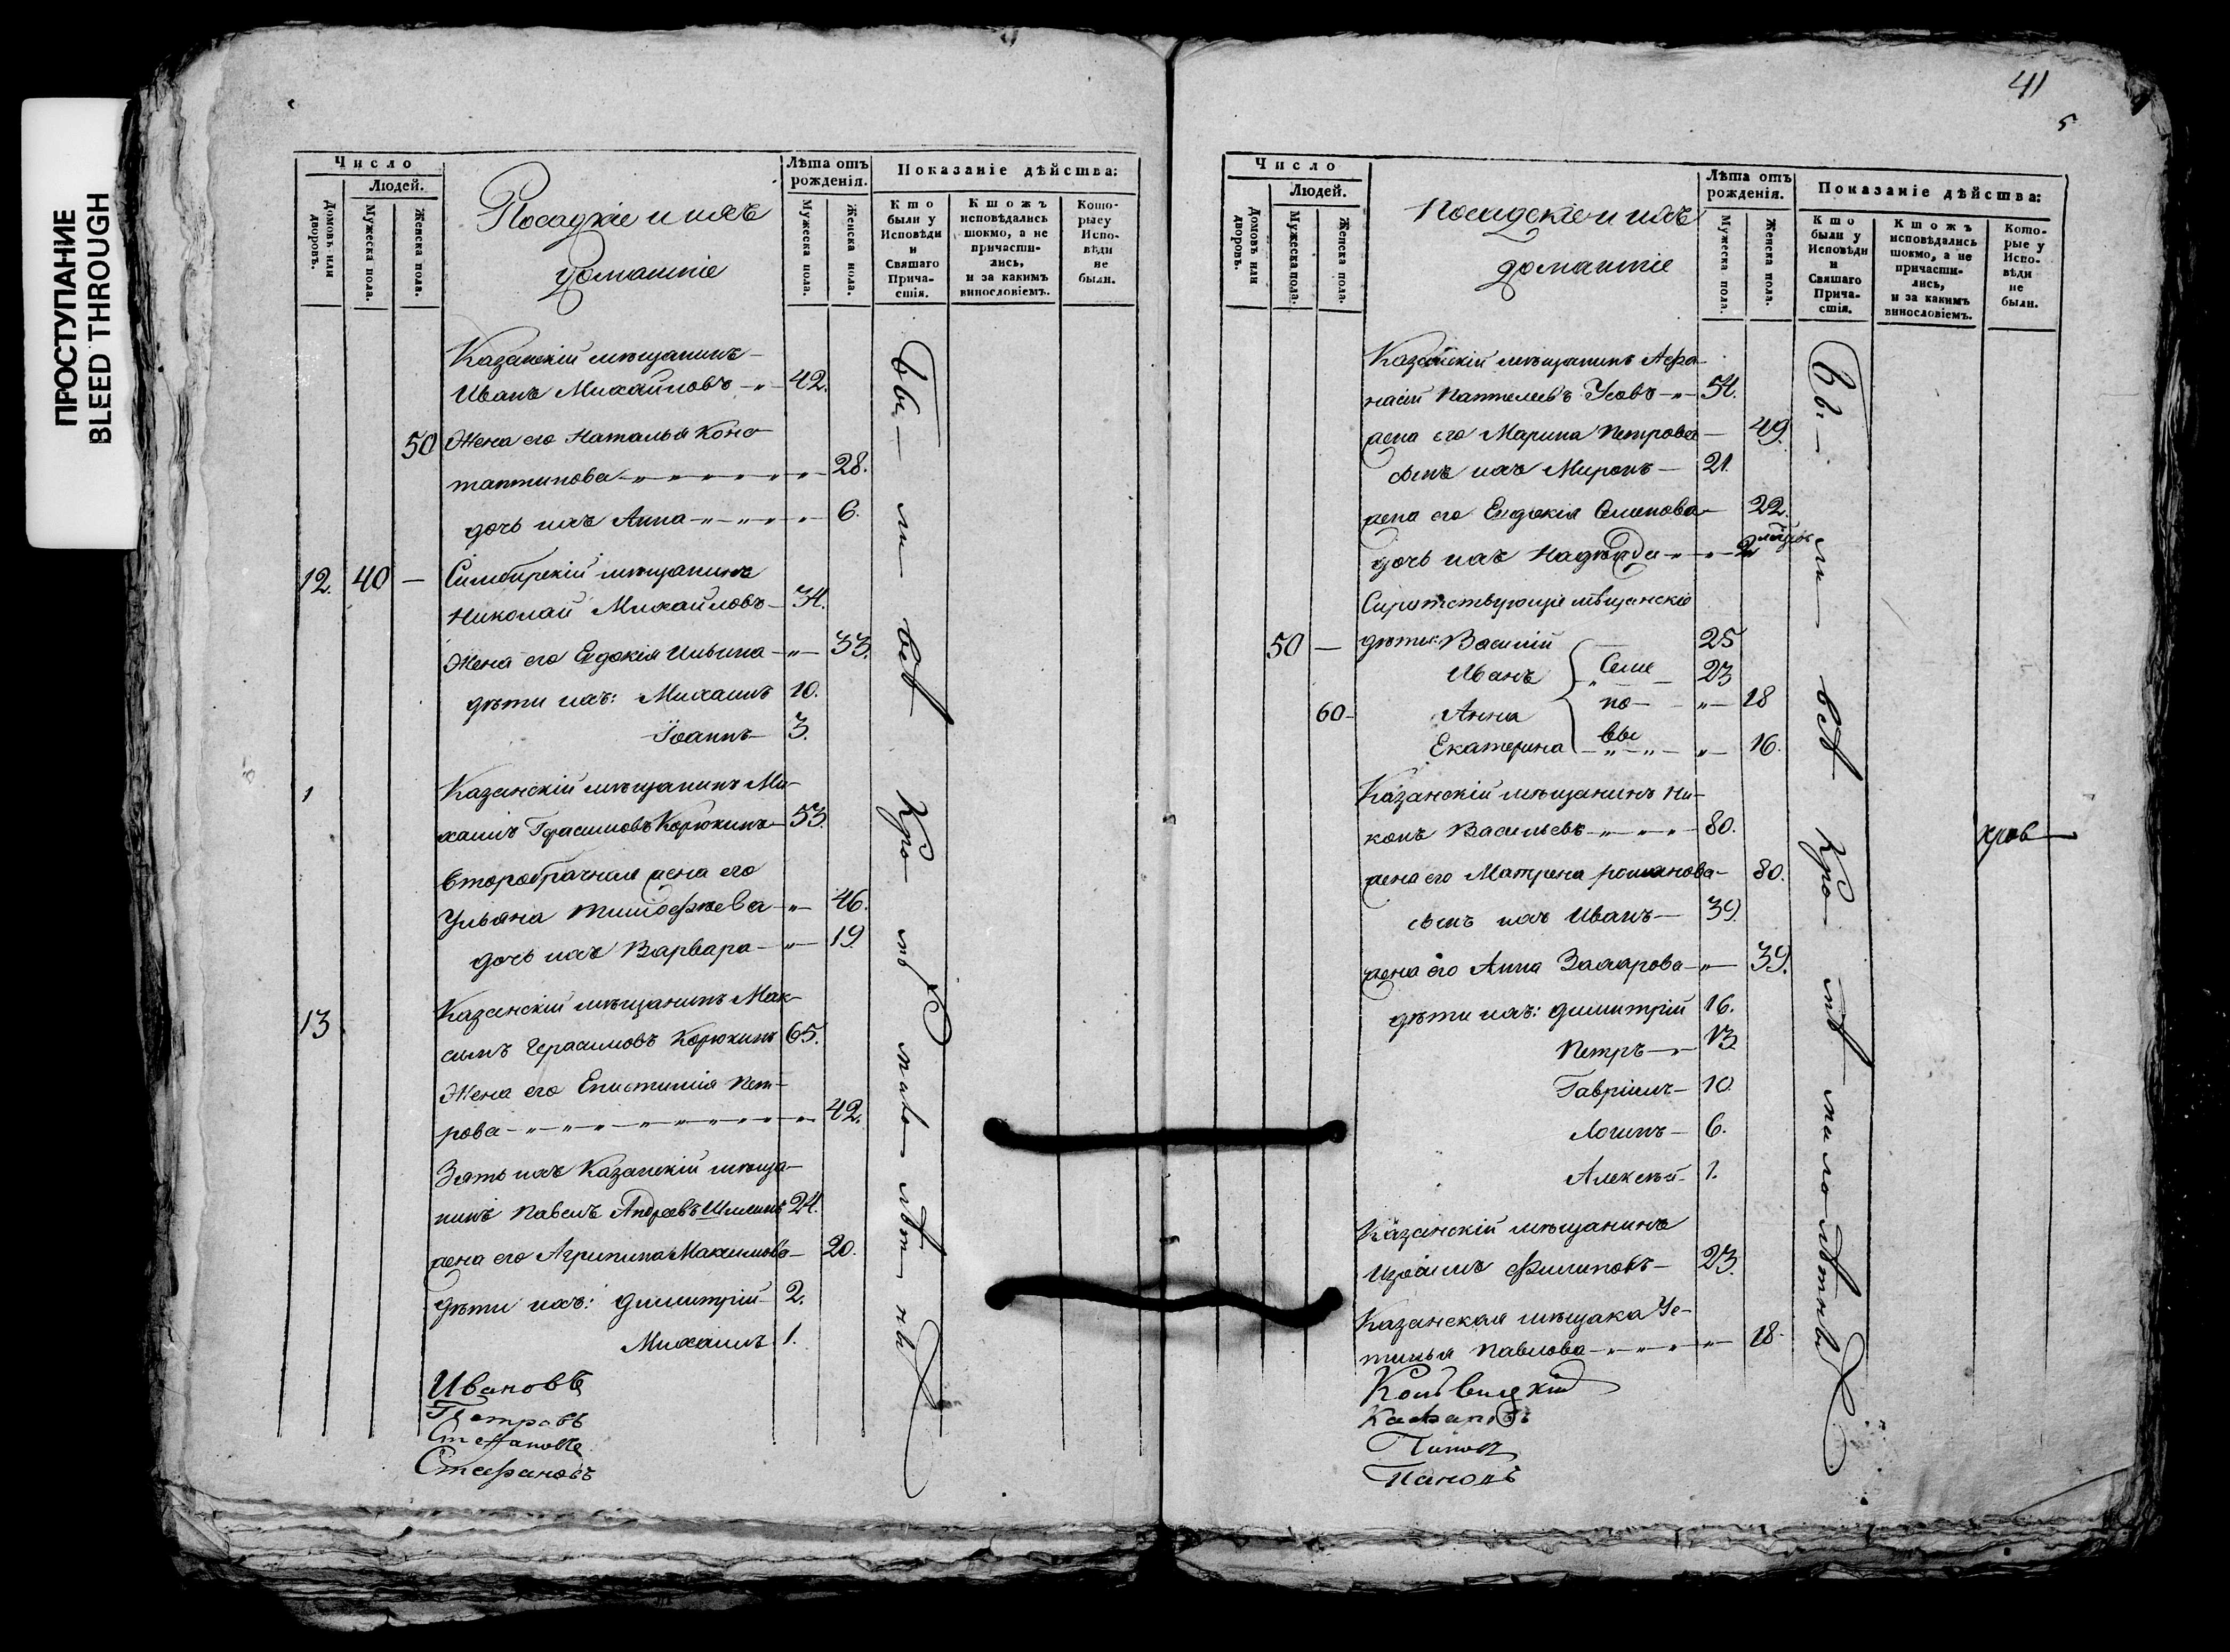 ПРОСТУПАНИЕ
BLEED THROUGH
Число
Людей.
Домовъ или дворовъ.
Мужеска пола.
Женска пола.
Посадскіе и ихъ
домашніе
Лѣта отъ рожденія.
Мужеска пола.
Женска пола.
Показаніе дѣйства:
Кто были у Исповѣди и Святаго Причастія.
Ктожъ исповѣдались токмо, а не причастились, и за какимъ винословіемъ.
Которые у Исповѣди не были.
Казанскій мѣщанинъ
Иванъ Михайловъ 42.
50 Жена его Наталья Конс
тантинова 28.
дочь ихъ Анна 6.
12. 40 — Симбирскій мѣщанинъ
Николай Михайловъ 34.
Жена его Евдокія Ильина 33.
дѣти ихъ: Михаилъ 10.
Іоаннъ 3.
1 Казанскій мѣщанинъ Ми-
хаилъ Герасимовъ Корюкинъ 53.
второбрачная жена его
Ульяна Тимофѣева 46.
дочь ихъ Варвара 19.
13 Казанскій мѣщанинъ Мак-
симъ Герасимовъ Корюкинъ 65.
Жена его Епистимія Пет-
рова 42.
Зять ихъ Казанскій мѣща-
нинъ Павелъ Андреевъ 24.
жена его Агрипина Максимова 20.
дѣти ихъ: Димитрій 2.
Михаилъ 1.
Ивановъ
Петровъ
Степановъ
Стефановъ
бы- ли всѣ кро- мѣ мало- лѣт- ны
41
5
Число
Людей.
Домовъ или дворовъ.
Мужеска пола.
Женска пола.
Посадскіе и ихъ
домашніе
Лѣта отъ рожденія.
Мужеска пола.
Женска пола.
Показаніе дѣйства:
Кто были у Исповѣди и Святаго Причастія.
Ктожъ исповѣдались токмо, а не причастились, и за какимъ винословіемъ.
Которые у Исповѣди не были.
Казанскій мѣщанинъ Афа
насій Пантелеевъ Усовъ 54.
жена его Марина Петрова 49.
сынъ ихъ Миронъ 21.
жена его Евдокія Семенова 22.
дочь ихъ Надежда 2
Сиротствующіе мѣщанскіе
50 — дѣти: Василій 25
Иванъ Семе 23
60 Анна но 18
Екатерина вы 16.
Казанскій мѣщанинъ Ни-
конъ Васильевъ 80.
жена его Матрена Романова 80.
сынъ ихъ Иванъ 39.
жена его Анна Захарова 39.
дѣти ихъ: Димитрій 16.
Петръ 13.
Гавріилъ 10.
Логинъ 6.
Алексѣй 1.
Казанскій мѣщанинъ
Израиль Филиповъ 23.
Казанская мѣщанка Ус-
тинья Павлова 18.
Поповъ
бы- ли всѣ кро- мѣ малолѣтны